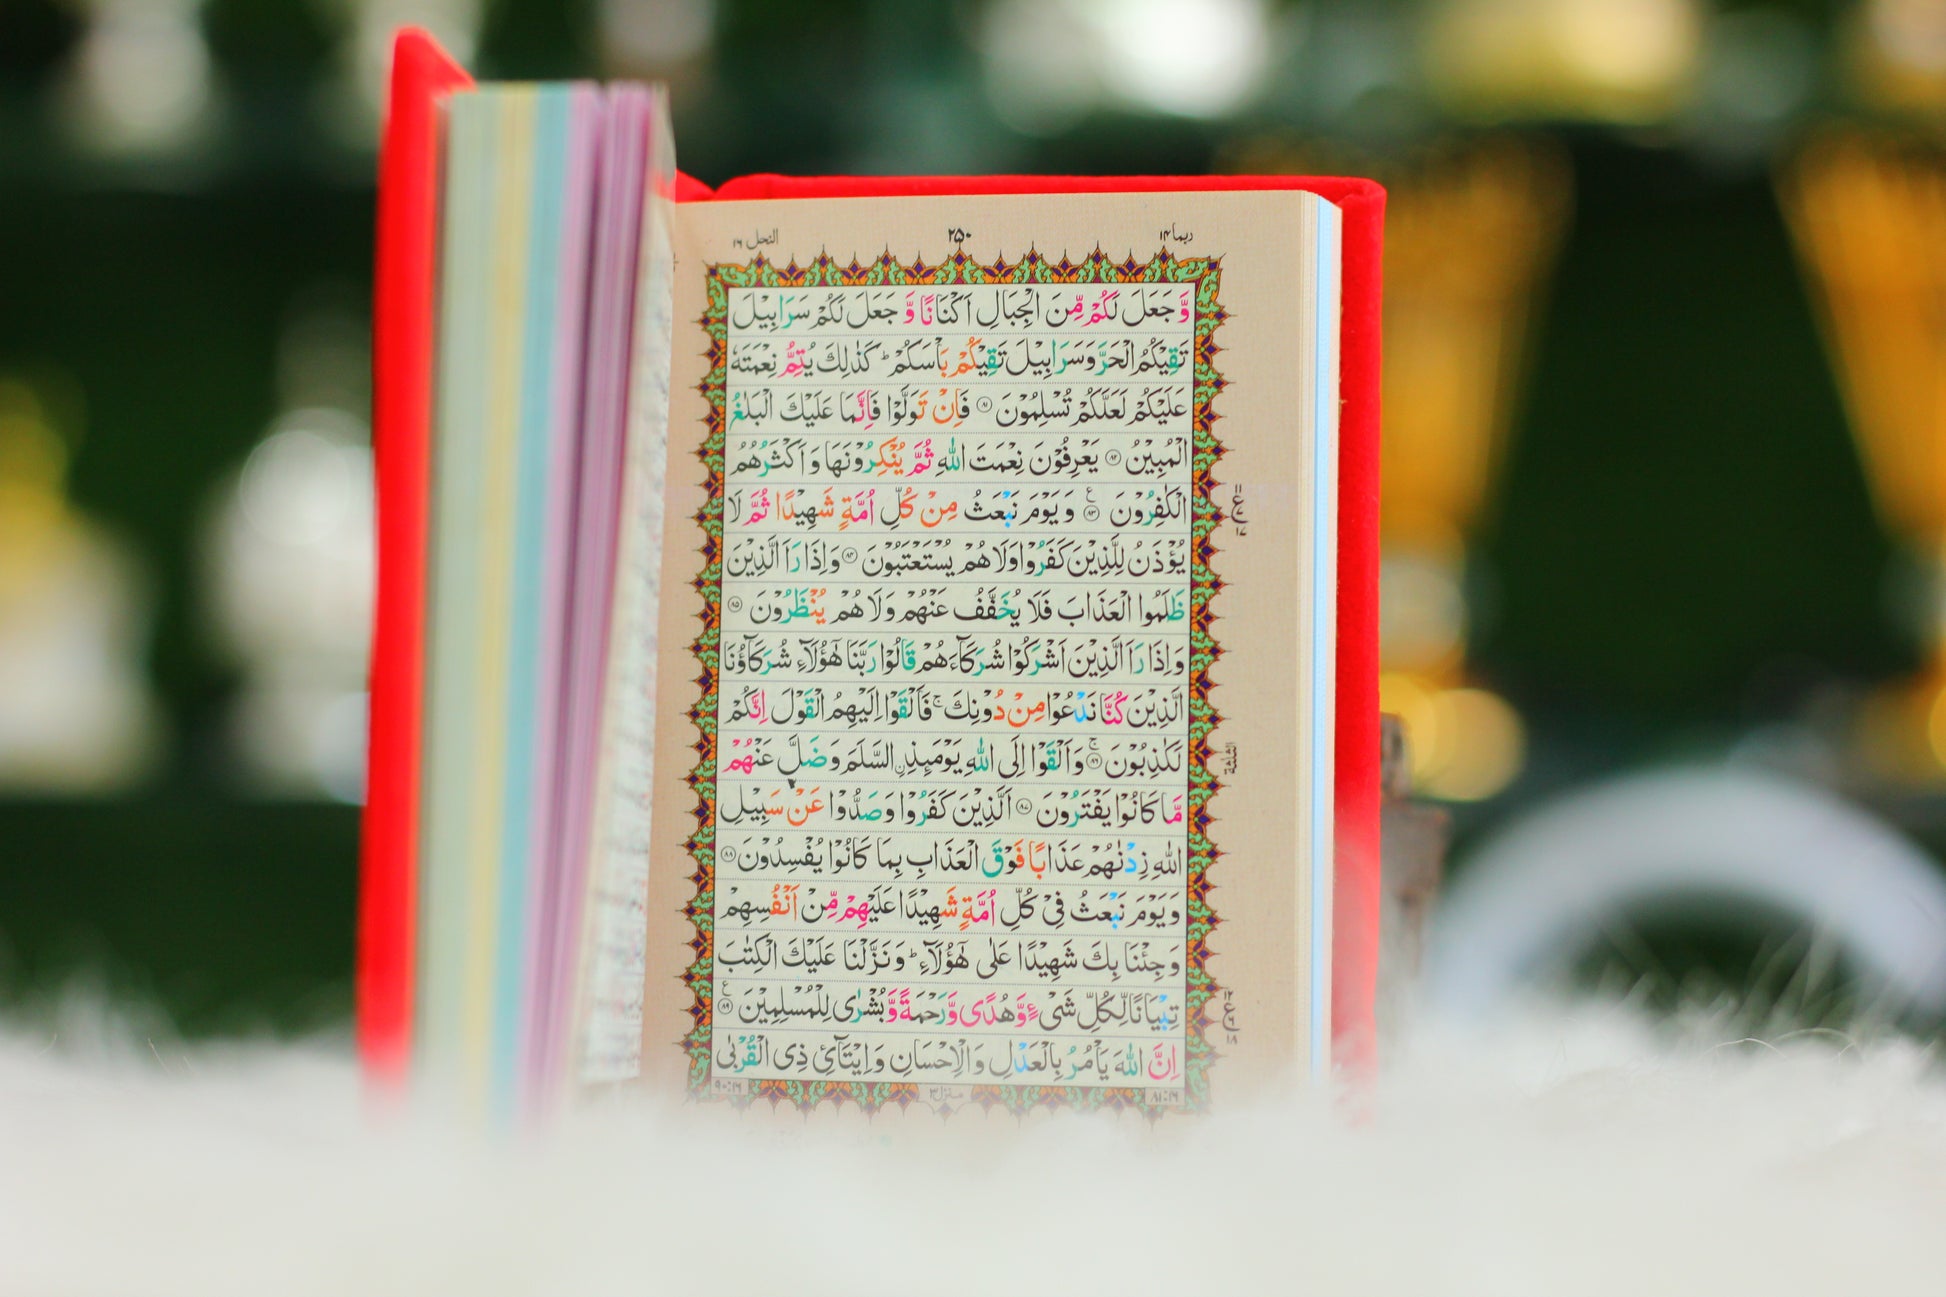 ربما ۱۴
۲۵۰
النحل ۱۶
وَّ جَعَلَ لَكُمْ مِّنَ الْجِبَالِ اَكْنَانًا وَّ جَعَلَ لَكُمْ سَرَابِيْلَ
تَقِيْكُمُ الْحَرَّ وَسَرَابِيْلَ تَقِيْكُمْ بَاْسَكُمْ ؕ كَذٰلِكَ يُتِمُّ نِعْمَتَهٗ
عَلَيْكُمْ لَعَلَّكُمْ تُسْلِمُوْنَ ۸۱ فَاِنْ تَوَلَّوْا فَاِنَّمَا عَلَيْكَ الْبَلٰغُ
الْمُبِيْنُ ۸۲ يَعْرِفُوْنَ نِعْمَتَ اللّٰهِ ثُمَّ يُنْكِرُوْنَهَا وَ اَكْثَرُهُمُ
الْكٰفِرُوْنَ ۸۳ ع وَ يَوْمَ نَبْعَثُ مِنْ كُلِّ اُمَّةٍ شَهِيْدًا ثُمَّ لَا
يُؤْذَنُ لِلَّذِيْنَ كَفَرُوْا وَلَا هُمْ يُسْتَعْتَبُوْنَ ۸۴ وَ اِذَا رَاَ الَّذِيْنَ
ظَلَمُوا الْعَذَابَ فَلَا يُخَفَّفُ عَنْهُمْ وَلَا هُمْ يُنْظَرُوْنَ ۸۵
وَ اِذَا رَاَ الَّذِيْنَ اَشْرَكُوْا شُرَكَآءَهُمْ قَالُوْا رَبَّنَا هٰٓؤُلَآءِ شُرَكَآؤُنَا
الَّذِيْنَ كُنَّا نَدْعُوْا مِنْ دُوْنِكَ ۚ فَاَلْقَوْا اِلَيْهِمُ الْقَوْلَ اِنَّكُمْ
لَكٰذِبُوْنَ ۸۶ ۚ وَ اَلْقَوْا اِلَى اللّٰهِ يَوْمَىِٕذِ ِۨالسَّلَمَ وَ ضَلَّ عَنْهُمْ
مَّا كَانُوْا يَفْتَرُوْنَ ۸۷ اَلَّذِيْنَ كَفَرُوْا وَ صَدُّوْا عَنْ سَبِيْلِ
اللّٰهِ زِدْنٰهُمْ عَذَابًا فَوْقَ الْعَذَابِ بِمَا كَانُوْا يُفْسِدُوْنَ ۸۸
وَ يَوْمَ نَبْعَثُ فِيْ كُلِّ اُمَّةٍ شَهِيْدًا عَلَيْهِمْ مِّنْ اَنْفُسِهِمْ
وَ جِئْنَا بِكَ شَهِيْدًا عَلٰى هٰٓؤُلَآءِ ؕ وَ نَزَّلْنَا عَلَيْكَ الْكِتٰبَ
تِبْيَانًا لِّكُلِّ شَيْءٍ وَّ هُدًى وَّ رَحْمَةً وَّ بُشْرٰى لِلْمُسْلِمِيْنَ ۸۹ ع
اِنَّ اللّٰهَ يَاْمُرُ بِالْعَدْلِ وَ الْاِحْسَانِ وَ اِيْتَآئِ ذِي الْقُرْبٰى
۸۱:۱۶
منزل ۳
۹۰:۱۶
الثلثة